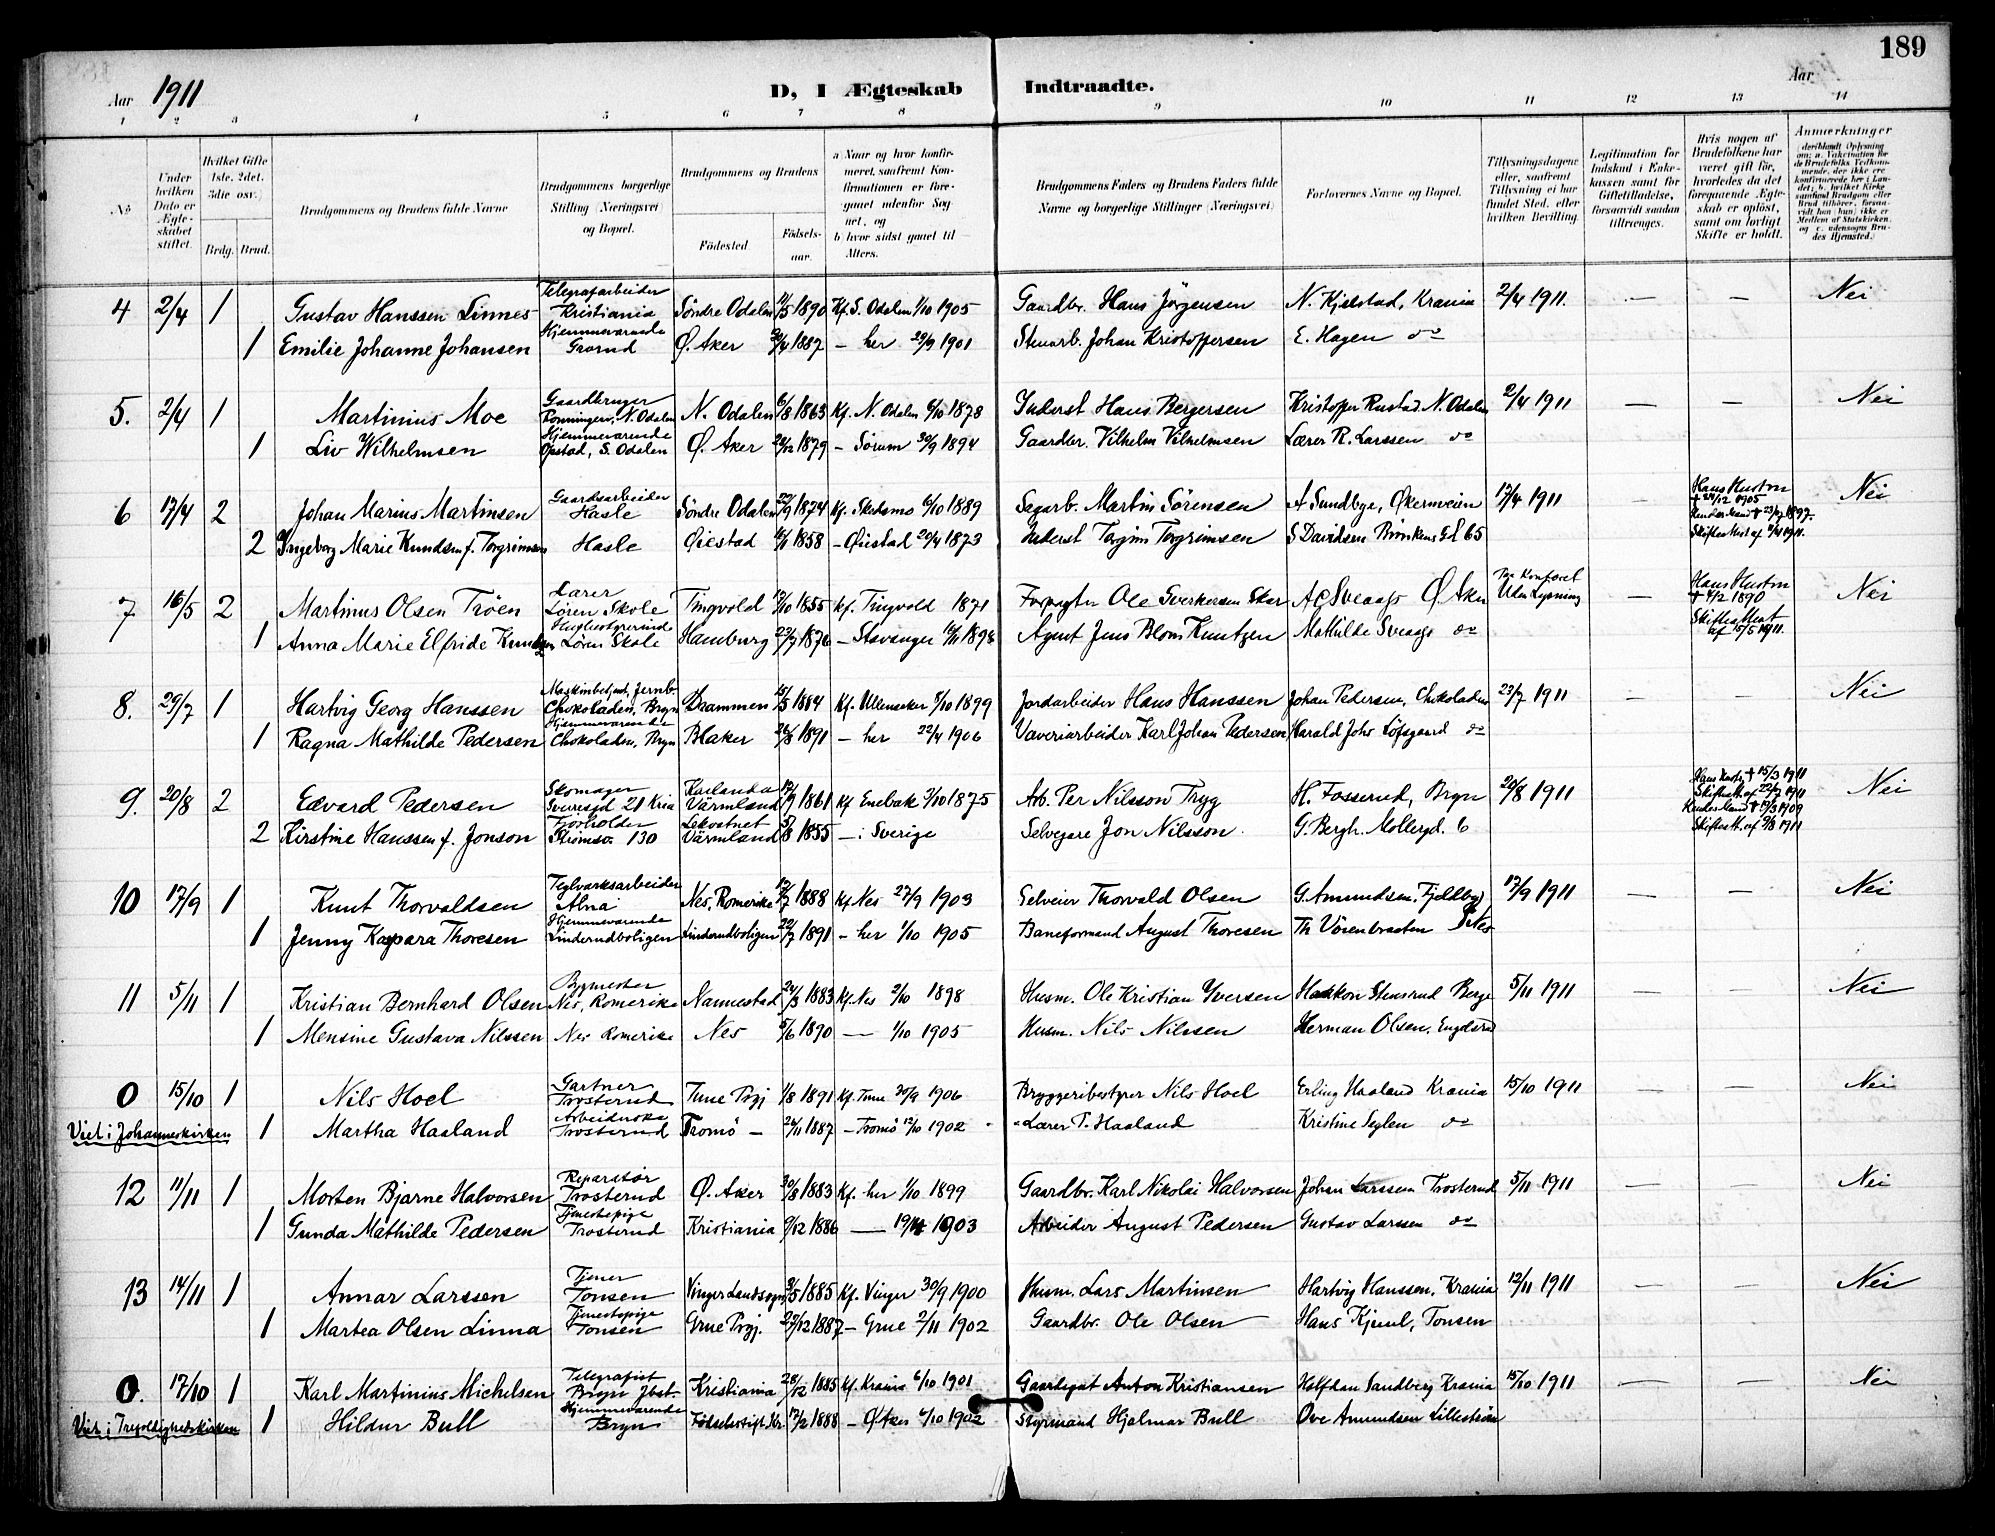 189
Aar 1911 D, I Ægteskab Indtraadte. Aar
1 2 3 4 5 6 7 8 9 10 11 12 13 14
No
Under hvilken Dato er Ægteskabet stiftet.
Hvilket Gifte 1ste, 2det, 3die osv.)
Brdg. Brud.
Brudgommens og Brudens fulde Navne
Brudgommens borgerlige Stilling (Næringsvei) og Bopæl.
Brudgommens og Brudens
Födested. Födselsaar.
a) Naar og hvor konfirmeret, saafremt Konfirmationen er foregaaet udenfor Sognet, og
b) hvor sidst gaaet til Alters.
Brudgommens Faders og Brudens Faders fulde Navne og borgerlige Stillinger (Næringsvei)
Forlovernes Navne og Bopæl.
Tillysningsdagene eller, saafremt Tillysning ei har fundet Sted, efter hvilken Bevilling.
Legitimation for Indskud i Enkekassen samt for Giftetilladelse, forsaavidt saadan tiltrænges.
Hvis nogen af Brudefolkene har været gift før, hvorledes da det foregaaende Ægteskab er oplöst, samt om lovligt Skifte er holdt.
Anmærkninger
4 2/4 1 Gustav Hanssen Linnes Telegrafarbeider Kristiania Søndre Odalen 11/5 1890 Kf. S. Odalen 1/10 1905 Gaardbr. Hans Jørgensen N. Kjelstad, Krania 2/4 1911. — — Nei
1 Emilie Johanne Johansen Hjemmeværende Grorud Ø. Aker 1887 — her 29/9 1901 Stenarb. Johan Kristoffersen E. Hagen do
5. 2/4 1 Martinius Moe Gaardbruger N. Odalen N. Odalen 6/8 1863 Kf. N. Odalen 6/10 1878 Inderst Hans Bergersen Kristoffer Rustad N. Odalen 2/4 1911 — — Nei
1 Liv Wilhelmsen Hjemmeværende Opstad, S. Odalen Ø. Aker 1879 — Sørum 30/9 1894 Gaardbr. Vilhelm Vilhelmsen Lærer R. Larssen do
6 17/4 2 Johan Marius Martinsen Gaardsarbeider Hasle Søndre Odalen 1874 Kf. Skedsmo 6/10 1889 Sagarb. Martin Sørensen A Sundbye, Økernveien 17/4 1911 — Hans Hustru † 1905 Nei
2 Ingeborg Marie Knudsen f. Torgrimsen Hasle Øiestad 1858 — Øiestad 20/4 1873 Inderst Torgrim Torgrimsen S Davidsen 65 Hendes Mand † 1897. Skifteattest af 1911.
7 16/5 2 Martinus Olsen Trøen Lærer Løren Skole Tingvold 1855 Kf. Tingvold 1871 Forpagter Ole Sverkersen A C Sveaas Ø Aker Uden Lysning — Hans Hustru † 1890 Nei
1 Anna Marie Elfride Løren Skole Hamburg 1876 — Stavanger Agent Jens Blom Knutzen Mathilde Sveaas do Skifteattest af 15/5 1911.
8. 29/7 1 Hartvig Georg Hanssen Maskinbetjent, Jernb. Chokoladen, Bryn Drammen 1884 Kf. Ullensaker 8/10 1899 Jordarbeider Hans Hanssen Johan Pedersen, Chokoladen 23/7 1911 — — Nei
1 Ragna Mathilde Pedersen Hjemmeværende Chokoladen, Bryn Blaker 1891 — her 22/4 1906 Væveriarbeider Karl Johan Pedersen Harald Johs Løfsgaard do
9. 20/8 2 Edvard Pedersen Skomager Sverresgd 21 Kria Karlanda Värmland 1861 Kf Enebak 3/10 1875 Arb. Per Nilsson Tryg H. Fosserud, Bryn 20/8 1911 Hans Hustru † 15/3 1911 Nei
2 Kirstine Hanssen f. Jonson Strømsv. 130 Värmland 1855 — i Sverige Selvegare Jon Nilsson. G. Bergh. Mollergd. 6 Hendes Mand † 1909
10 17/9 1 Knut Thorvaldsen Teglværksarbeider Alna Nes, Romerike 1888 Kf Nes 27/9 1903 Selveier Thorvald Olsen G. Amundsen, Fjeldby 17/9 1911 — — Nei
1 Jenny Kaspara Thoresen Hjemmeværende Linderudboligen Linderudboligen 1891 — her 1/10 1905 Baneformand August Thoresen Th Vörenbraaten Nes
11 5/11 1 Kristian Bernhard Olsen Bygmester Nes, Romerike Nannestad 1883 Kf. Nes 2/10 1898 Husm. Ole Kristian Yversen Haakon Stensrud Berge 5/11 1911 — — Nei
1 Mensine Gustava Nilssen Nes Romerike Nes 5/6 1890 — 1/10 1905 Husm. Nils Nilssen Herman Olsen,
0 15/10 1 Nils Hoel Gartner Trosterud Tune Prgj 1/8 1891 Kf. Tune 30/9 1906 Bryggeribestyrer Nils Hoel Erling Haaland Krania 15/10 1911 — — Nei
Viet i Johanneskirken 1 Martha Haaland Trosterud Tromö — 1887 — Tromö 12/10 1902 Lærer T. Haaland Kristine Seglen do
12 11/11 1 Morten Bjarne Halvorsen Reparatør Trosterud Ø. Aker 30/8 1883 Kf. her 1/10 1899 Gaardbr. Karl Nikolai Halvorsen Johan Larssen Trosterud 5/11 1911 — Nei
1 Gunda Mathilde Pedersen Tjenestepige Trosterud Kristiania 9/12 1886 — 1903 Arbeider August Pedersen Gustav Larssen do
13 14/11 1 Annar Larssen Tjener Tonsen Vinger Landsogn 1885 Kf. Vinger 30/9 1900 Husm. Lars Martinsen Hartvig Hanssen, Krania 12/11 1911 — — Nei
1 Martea Olsen Linna Tjenestepige Tonsen Grue Prgj. 1887 — Grue 2/11 1902 Gaardbr. Ole Olsen Hans Kjenl, Tonsen
0. 17/10 1 Karl Martinius Michelsen Telegrafist Bryn Jbst. Kristiania 1885 Kf. Krania 6/10 1901 Anton Kristiansen Halfdan Sandberg Krania 15/10 1911 — — Nei
Viet i Trefoldighedskirken 1 Hildur Bull Hjemmeværende Bryn Födselsstift. Kr. 1888 — Ø Aker 1902 Styrmand Hjalmar Bull Ove Amundsen Lillestrøm